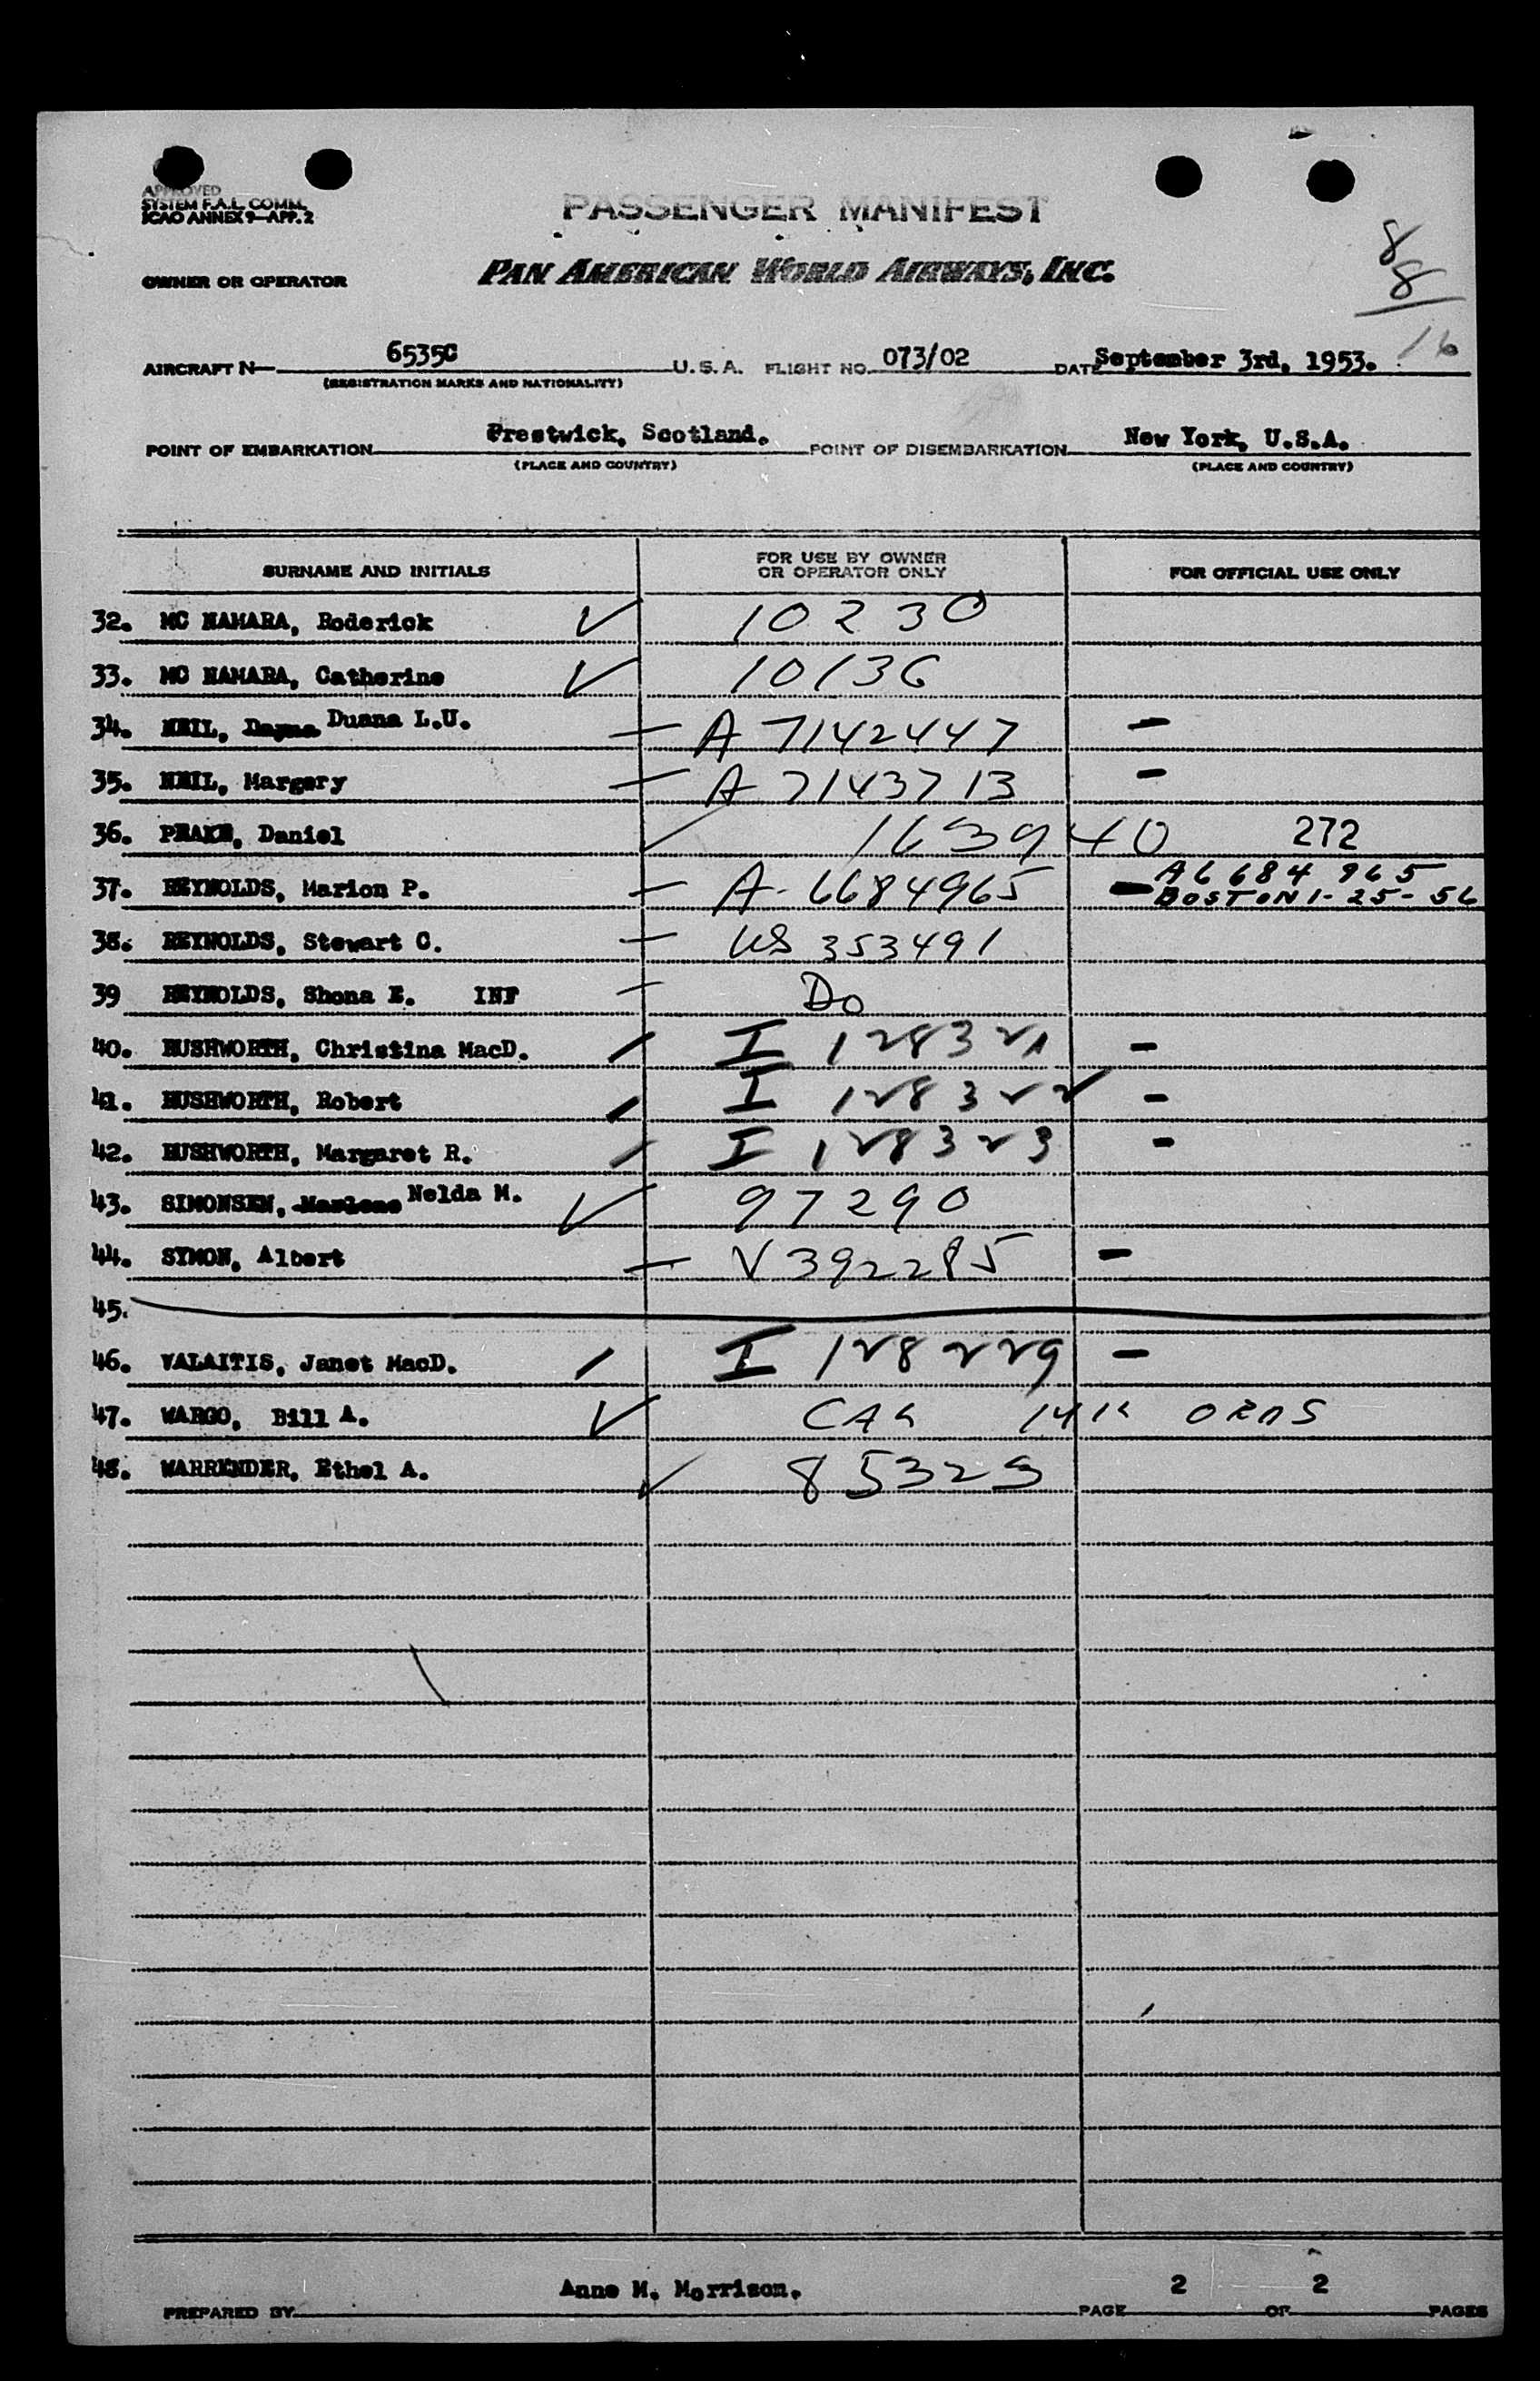 APPROVED
SYSTEM F.A.L. COMM.
ICAO ANNEX 9—APP. 2
PASSENGER MANIFEST
8
8
16
OWNER OR OPERATOR PAN AMERICAN WORLD AIRWAYS, INC.
AIRCRAFT N— 6535C U.S.A. FLIGHT NO. 073/02 DATE September 3rd, 1953.
(REGISTRATION MARKS AND NATIONALITY)
POINT OF EMBARKATION Prestwick, Scotland. POINT OF DISEMBARKATION New York, U.S.A.
(PLACE AND COUNTRY) (PLACE AND COUNTRY)
SURNAME AND INITIALS FOR USE BY OWNER OR OPERATOR ONLY FOR OFFICIAL USE ONLY
32. MC NAMARA, Roderick ✓ 10230
33. MC NAMARA, Catherine ✓ 10136
34. NEIL, Dayna Duana L.U. — A 7142447 —
35. NEIL, Margery — A 7143713 —
36. PEAKE, Daniel ✓ 163940 272
37. REYNOLDS, Marion P. — A-6684965 — A6684965
BOSTON 1-25-56
38. REYNOLDS, Stewart C. — US 353491
39 REYNOLDS, Shona E. INF — Do
40. RUSHWORTH, Christina MacD. / I 128321 —
41. RUSHWORTH, Robert / I 128322 —
42. RUSHWORTH, Margaret R. / I 128323 —
43. SIMONSEN, Marlene Nelda M. ✓ 97290
44. SYMON, Albert — V 392285 —
45.
46. VALAITIS, Janet MacD. / I 128229 —
47. WARGO, Bill A. ✓ ORDS
48. WARRENDER, Ethel A. ✓ 85323
PREPARED BY Anne M. Morrison. PAGE 2 OF 2 PAGES